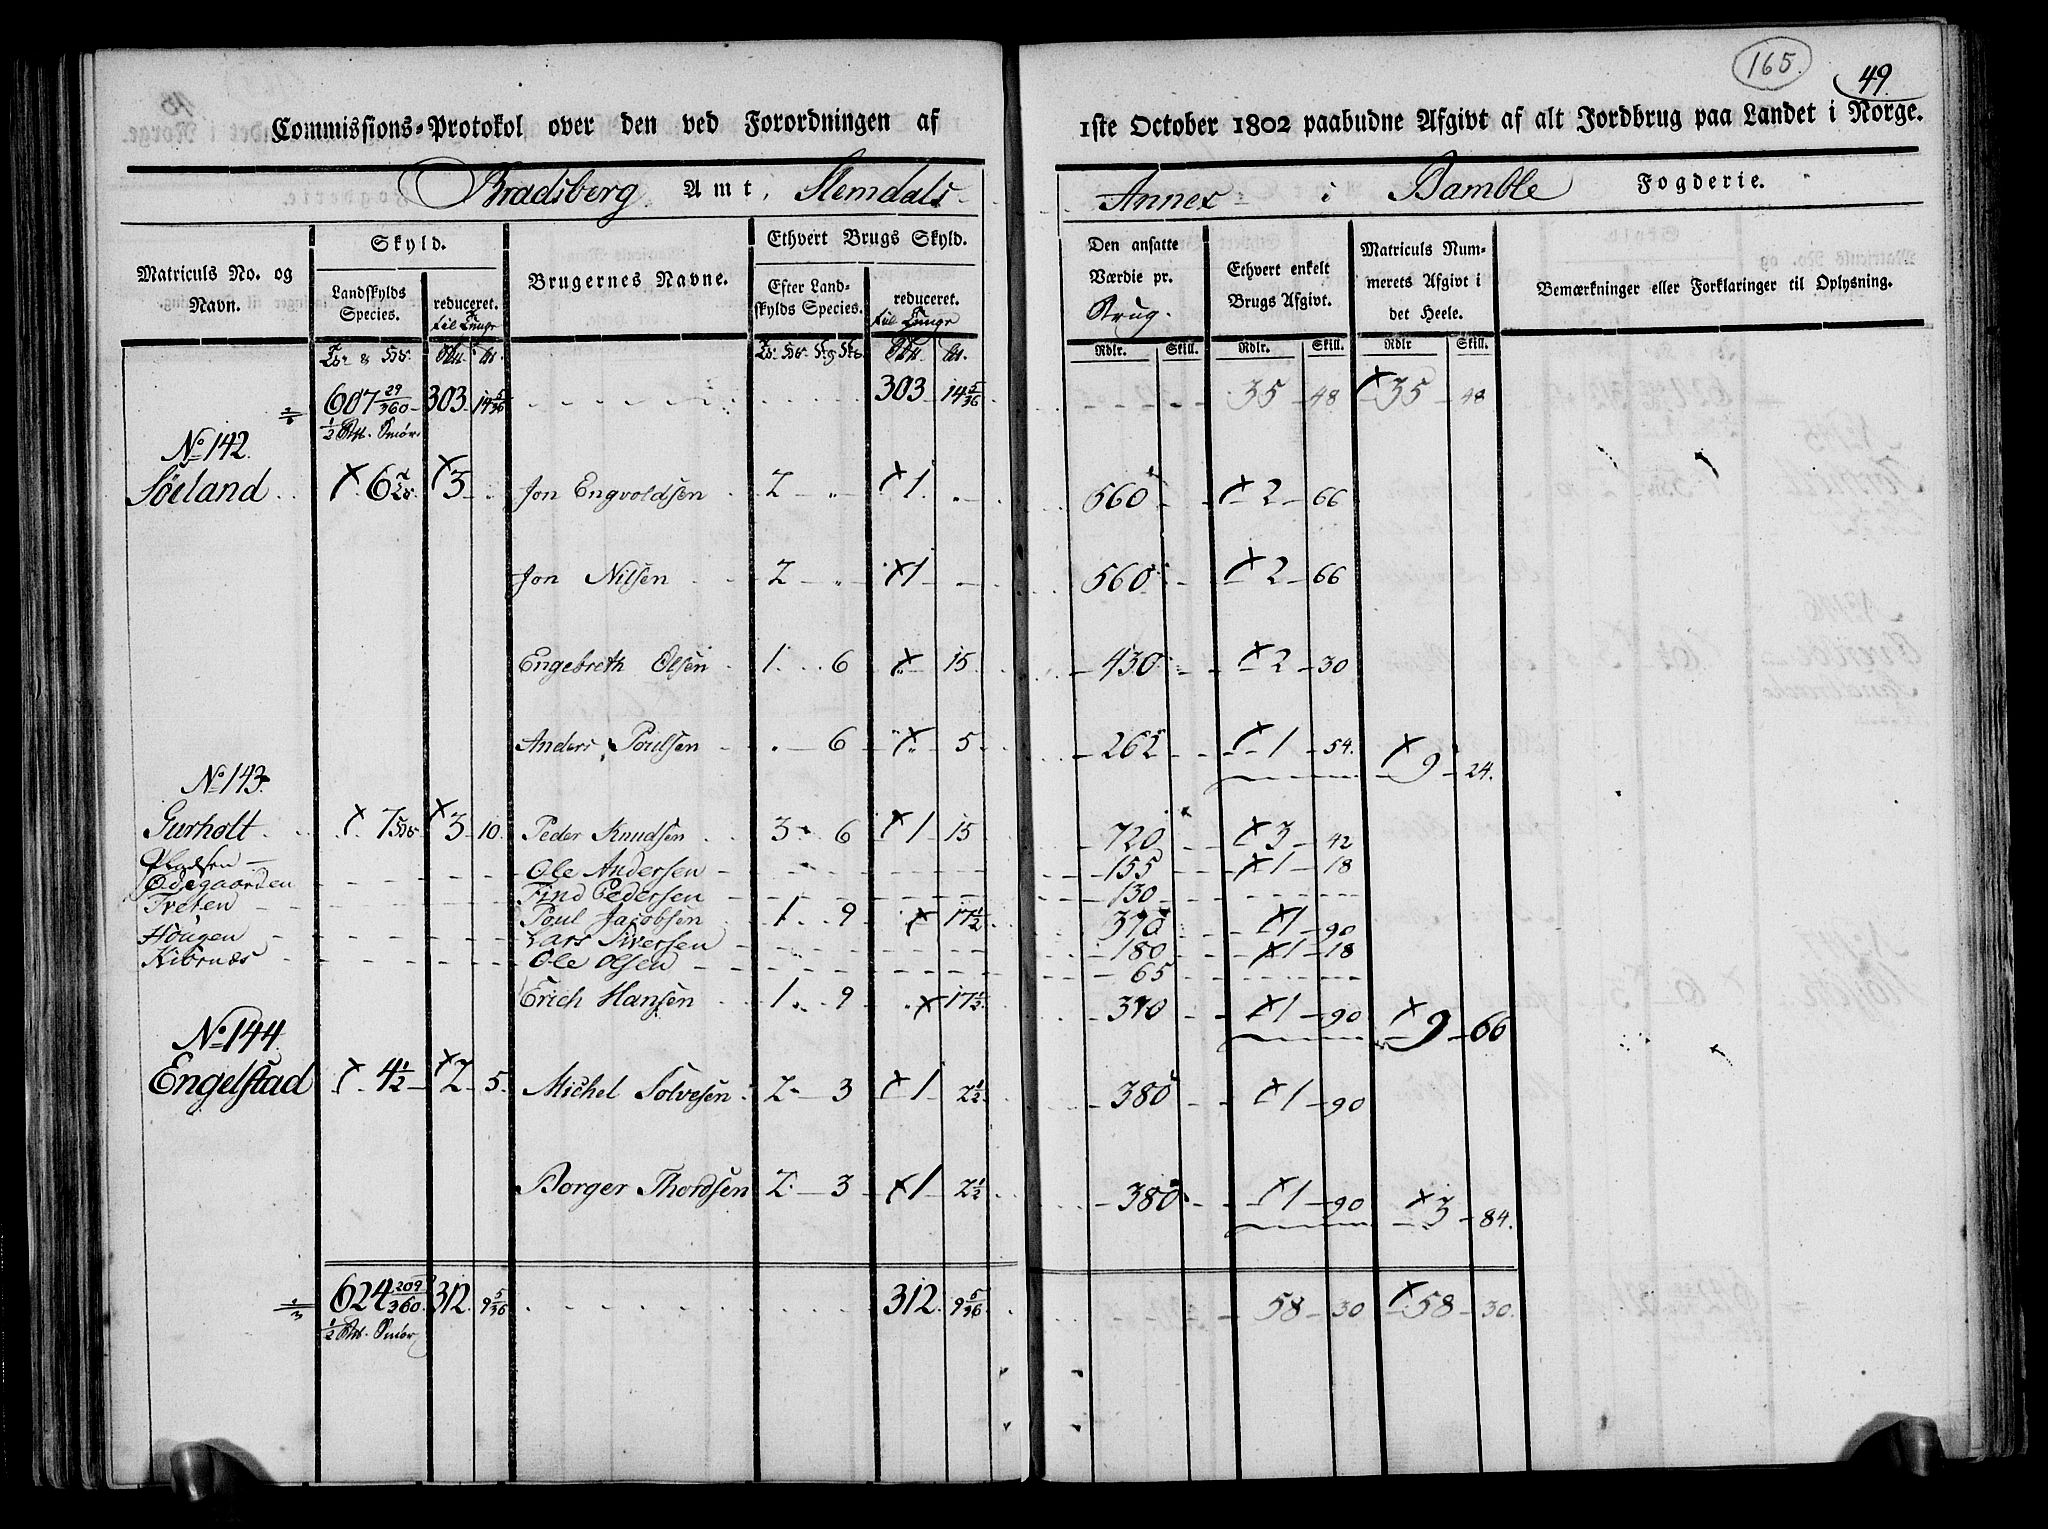 165.
49.
Commissions-Protokol over den ved Forordningen af 1ste October 1802 paabudne Afgivt af alt Jordbrug paa Landet i Norge.
Bradsberg Amt, Slemdals Annex i Bamble Fogderie.
Matriculs No. og Navn. Skyld. Brugernes Navne. Ethvert Brugs Skyld. Den ansatte Værdie pr. Brug. Ethvert enkelt Brugs Afgivt. Matriculs Nummerets Afgivt i det Heele. Bemærkninger eller Forklaringer til Oplysning.
Landskylds Species. reduceret. til Tunge Efter Landskylds Species. reduceret. til Tunge
Rdlr. Skill. Rdlr. Skill. Rdlr Skill.
607 29/360 303 14 5/36 303 14 5/36 35 48 35 48
1/2 Smør.
No 142.
Søeland 6 3 Jon Engvoldsen 2 1 560 2 66
Jon Nilsen 2 1 560 2 66
Engebreth Olsen 1 6 15 430 2 30
Anders Poulsen 6 5 262 1 54. 9 24.
No 143.
Gurholt 7 3 10. Peder Knudsen 3 6 1 15 720 3 42
Pladsen Ole Andersen 155 1 18
Ødegaarden Find Pedersen 130
Tveten Poul Jacobsen 1 9 17 1/2 370 1 90
Hougen Lars Siversen 180 1 18
Kiørnæs Ole Olsen 65
Erich Hansen 1 9 17 1/2 370 1 90 9 66
No 144.
Engelstad 4 1/2 2 5. Michel Solvesen 2 3 1 2 1/2 380 1 90
Borger Thordsen 2 3 1 2 1/2 380 1 90 3 84.
624 209/360 312. 9 5/36 312. 9 5/36 58 30 58 30.
1/2 Smør